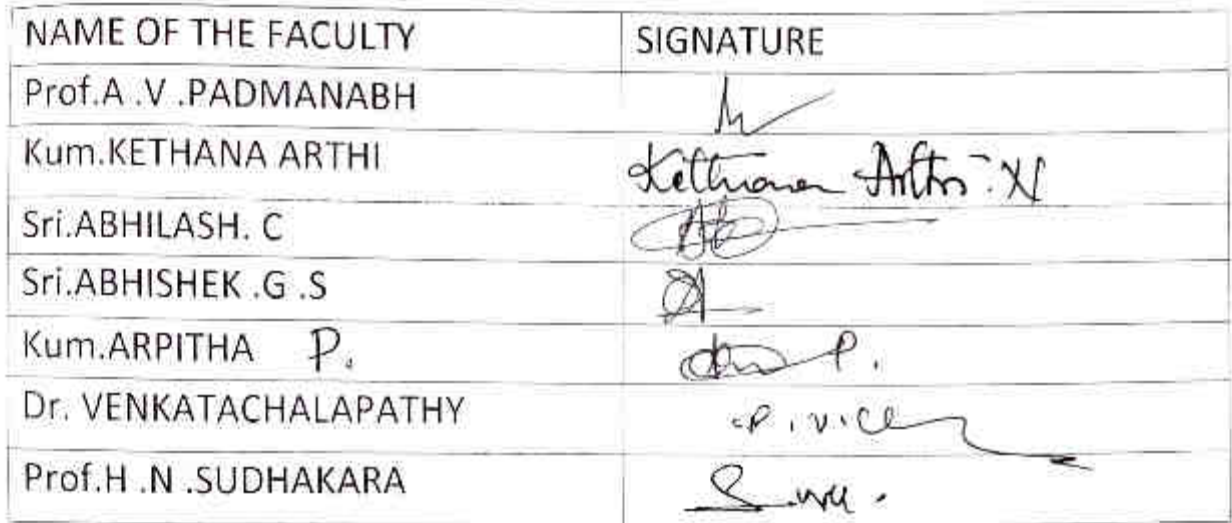 NAME OF THE FACULTY SIGNATURE
Prof.A .V .PADMANABH
Kum.KETHANA ARTHI Kethana Arthi
Sri.ABHILASH. C
Sri.ABHISHEK .G .S
Kum.ARPITHA P. P.
Dr. VENKATACHALAPATHY
Prof.H .N .SUDHAKARA